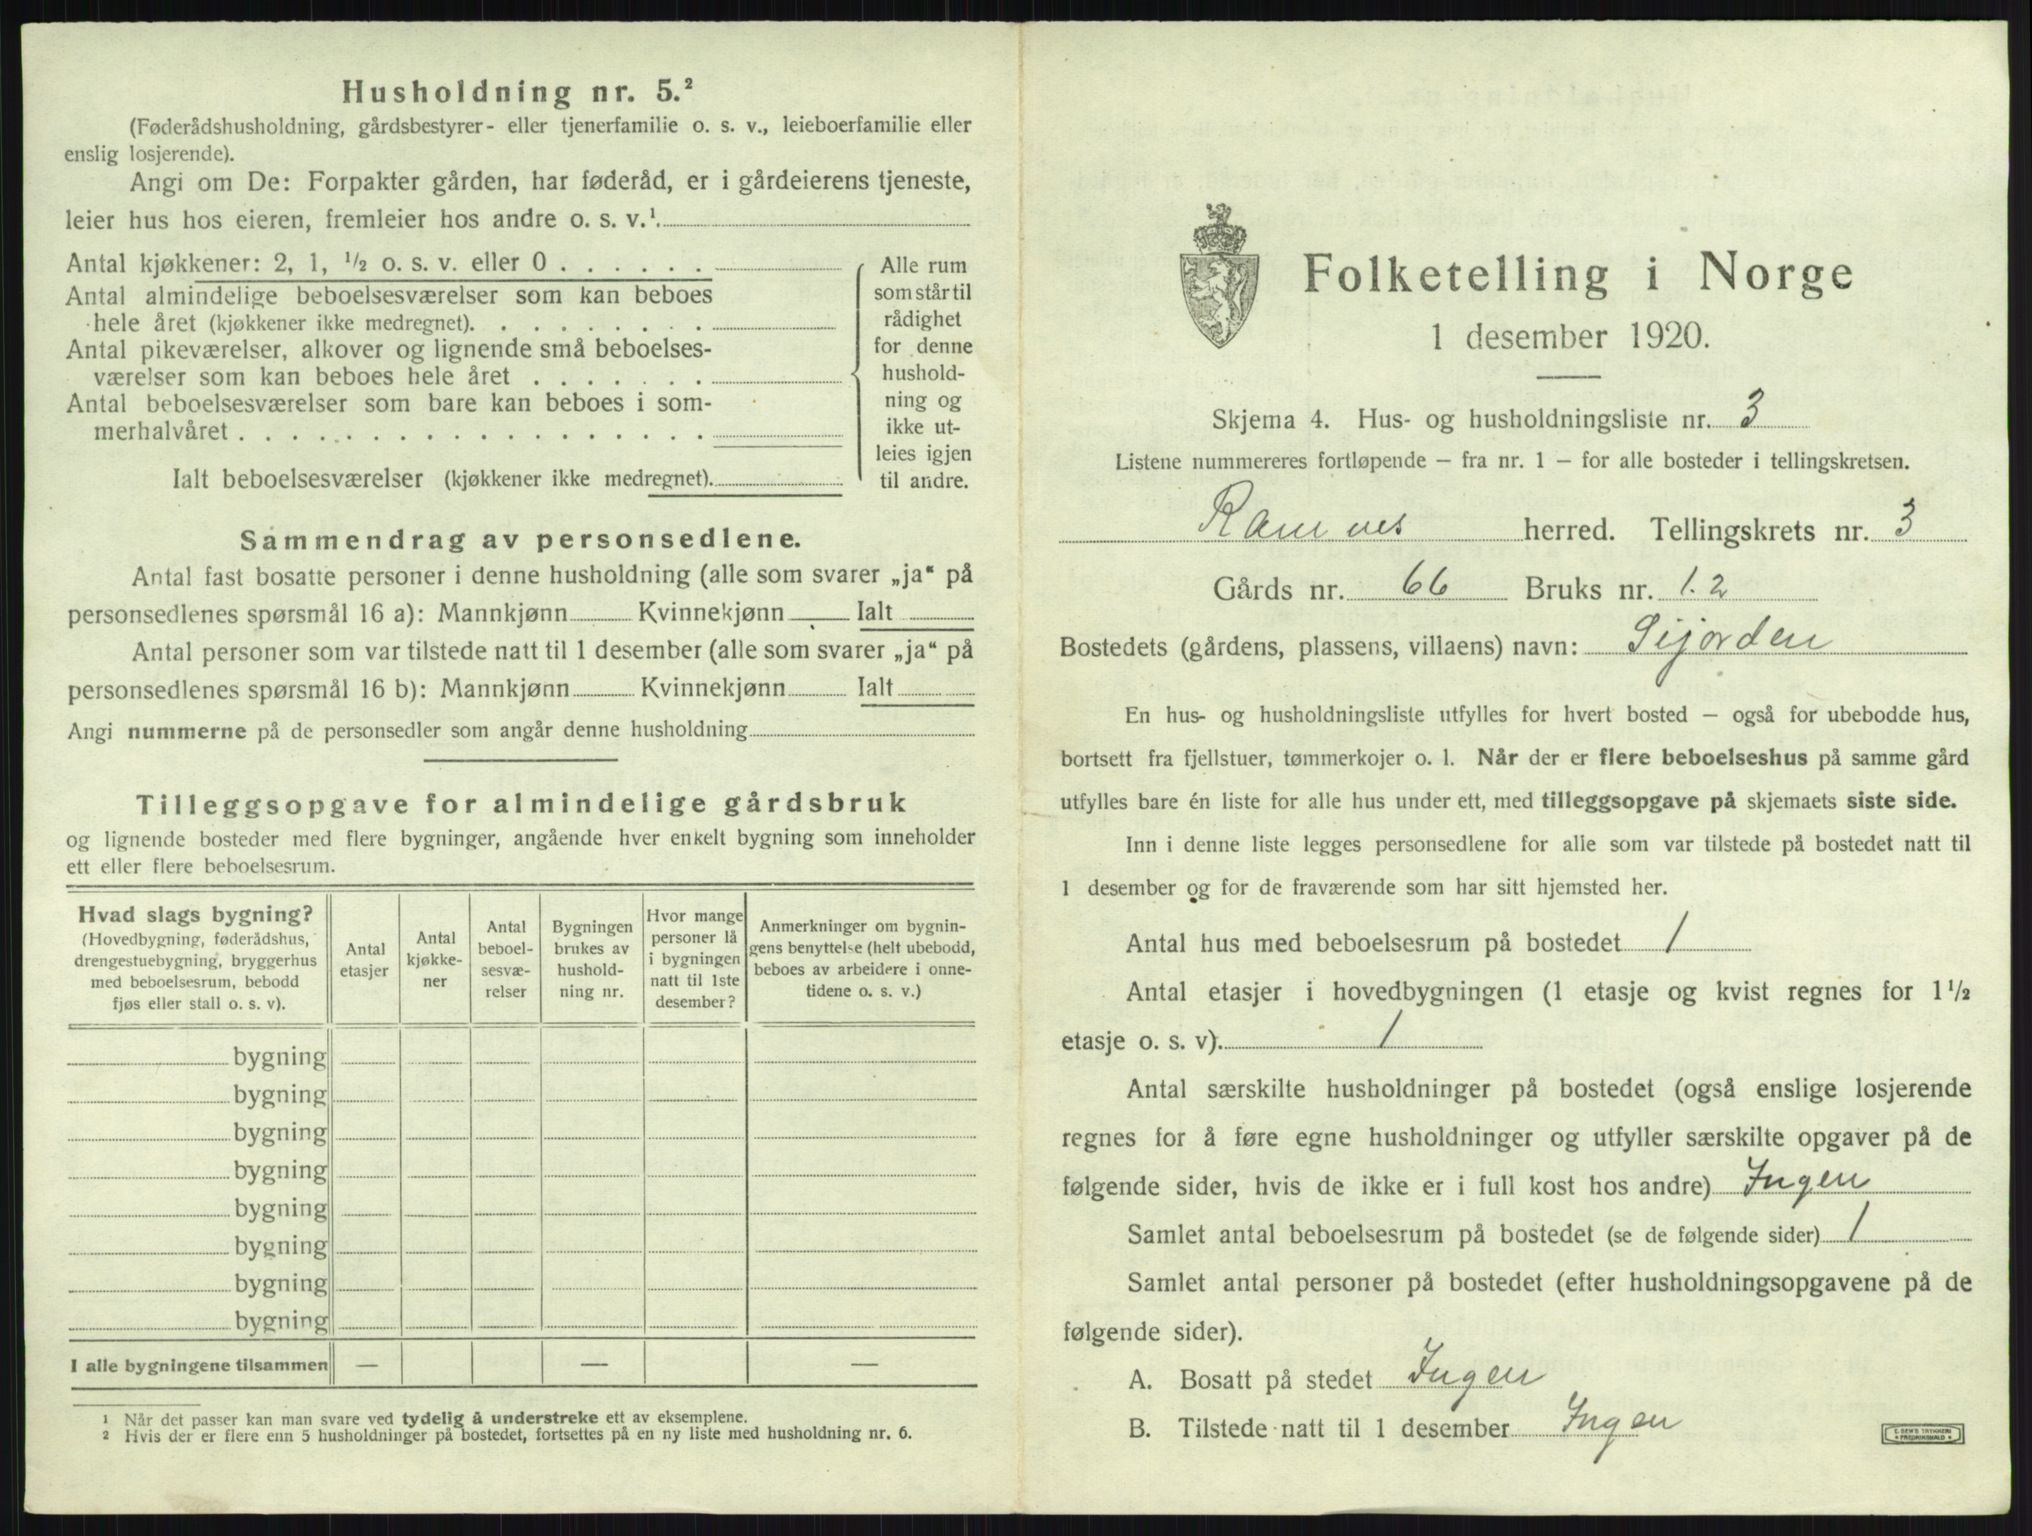 Husholdning nr. 5.²
(Føderådshusholdning, gårdsbestyrer- eller tjenerfamilie o. s. v., leieboerfamilie eller
enslig losjerende).
Angi om De: Forpakter gården, har føderåd, er i gårdeierens tjeneste,
leier hus hos eieren, fremleier hos andre o. s. v.¹.
Antal kjøkkener: 2, 1, ½ o. s. v. eller 0 . . . . . .
Antal almindelige beboelsesværelser som kan beboes
hele året (kjøkkener ikke medregnet). . . . . . . . .
Antal pikeværelser, alkover og lignende små beboelses-
værelser som kan beboes hele året . . . . . . .
Antal beboelsesværelser som bare kan beboes i som-
merhalvåret . . . . . . . . . . . . . . . . . .
Ialt beboelsesværelser (kjøkkener ikke medregnet).
Alle rum
som står til
rådighet
for denne
hushold-
ning og
ikke ut-
leies igjen
til andre.
Sammendrag av personsedlene.
Antal fast bosatte personer i denne husholdning (alle som svarer „ja“ på
personsedlenes spørsmål 16 a): Mannkjønn Kvinnekjønn Ialt
Antal personer som var tilstede natt til 1 desember (alle som svarer „ja“ på
personsedlenes spørsmål 16 b): Mannkjønn Kvinnekjønn Ialt
Angi nummerne på de personsedler som angår denne husholdning
Tilleggsopgave for almindelige gårdsbruk
og lignende bosteder med flere bygninger, angående hver enkelt bygning som inneholder
ett eller flere beboelsesrum.
Hvad slags bygning?
(Hovedbygning, føderådshus,
drengestuebygning, bryggerhus
med beboelsesrum, bebodd
fjøs eller stall o. s. v).
Antal
etasjer
Antal
kjøkke-
ner
Antal
beboel-
sesvæ-
relser
Bygningen
brukes av
hushold-
ning nr.
Hvor mange
personer lå
i bygningen
natt til 1ste
desember?
Anmerkninger om bygnin-
gens benyttelse (helt ubebodd,
beboes av arbeidere i onne-
tidene o. s. v.)
bygning
bygning
bygning
bygning
bygning
bygning
bygning
bygning
I alle bygningene tilsammen — — —
¹ Når det passer kan man svare ved tydelig å understreke ett av eksemplene.
² Hvis der er flere enn 5 husholdninger på bostedet, fortsettes på en ny liste med husholdning nr. 6.
Folketelling i Norge
1 desember 1920.
Skjema 4. Hus- og husholdningsliste nr. 3
Listene nummereres fortløpende – fra nr. 1 – for alle bosteder i tellingskretsen.
Ramnes herred. Tellingskrets nr. 3
Gårds nr. 66 Bruks nr. 1.2
Bostedets (gårdens, plassens, villaens) navn: Sijorden
En hus- og husholdningsliste utfylles for hvert bosted – også for ubebodde hus,
bortsett fra fjellstuer, tømmerkojer o. l. Når der er flere beboelseshus på samme gård
utfylles bare én liste for alle hus under ett, med tilleggsopgave på skjemaets siste side.
Inn i denne liste legges personsedlene for alle som var tilstede på bostedet natt til
1 desember og for de fraværende som har sitt hjemsted her.
Antal hus med beboelsesrum på bostedet 1
Antal etasjer i hovedbygningen (1 etasje og kvist regnes for 1½
etasje o. s. v). 1
Antal særskilte husholdninger på bostedet (også enslige losjerende
regnes for å føre egne husholdninger og utfyller særskilte opgaver på de
følgende sider, hvis de ikke er i full kost hos andre) Ingen
Samlet antal beboelsesrum på bostedet (se de følgende sider) 1
Samlet antal personer på bostedet (efter husholdningsopgavene på de
følgende sider).
A. Bosatt på stedet Ingen
B. Tilstede natt til 1 desember Ingen